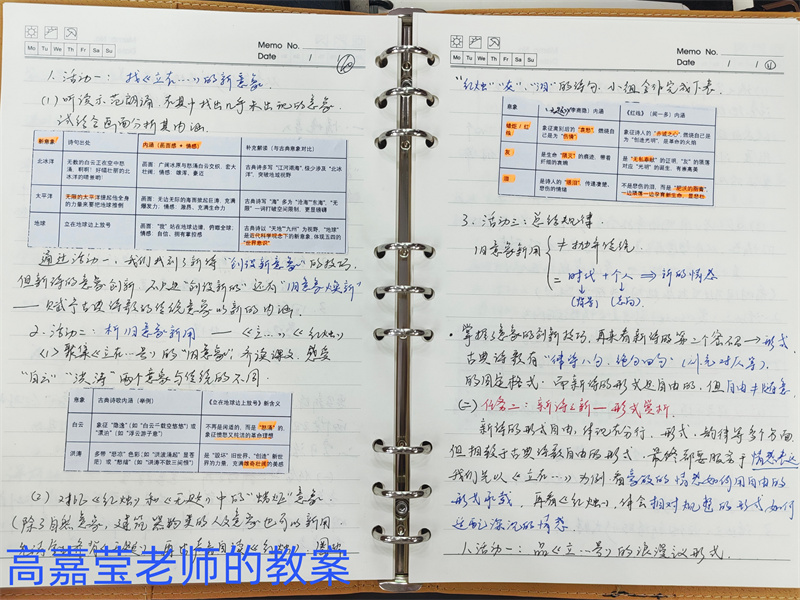 Memo No.
Mo Tu We Th Fr Sa Su
Date /
1. 活动一：找《立在…》的新意象
(1) 听读示范朗诵，不其中找出几乎未出现的意象，
试结合画面分析其内涵。
新意象 诗句出处 内涵（画面感 + 情感） 补充解读（与古典意象对比）
北冰洋 无数的白云正在空中怒涌，啊啊！好幅壮丽的北冰洋的情景哟！ 画面：广阔冰原与怒涌白云交织，宏大壮阔；情感：雄浑、豪迈 古典诗多写“江河湖海”，极少涉及“北冰洋”，突破地域视野
太平洋 无限的太平洋提起他全身的力量来要把地球推倒 画面：无边无际的海面掀起巨涛，充满爆发力；情感：激昂、充满生命力 古典诗写“海”多为“沧海”“东海”，“无限”一词打破空间限制，更显磅礴
地球 立在地球边上放号 画面：“我”站在地球边缘，俯瞰全球；情感：自信、拥有掌控感 古典诗以“天地”“九州”为视野，“地球”是近代科学观念下的新意象，体现五四的“世界意识”
通过活动一，我们找到了新诗“创设新意象”的技巧，
但新诗的意象创新，不只是“创设新的”还有“旧意象焕新”
——赋予古典诗歌的传统意象以新的内涵。
2. 活动二：析旧意象新用 ——《立…》《红烛》
(1) 聚焦《立在…号》的“旧意象”，齐读课文，感受
“白云”“洪涛”两个意象与传统的不同。
意象 古典诗歌内涵（举例） 《立在地球边上放号》新含义
白云 象征“隐逸”（如“白云千载空悠悠”）或“漂泊”（如“浮云游子意”） 不再是闲适的，而是“怒涌”的，象征愤怒又民活的革命理想
洪涛 多带“悲凉”色彩（如“洪波涌起”显苍茫）或“愁绪”（如“洪涛不数三间恨”） 是“毁坏”旧世界、“创造”新世界的力量，充满雄奇壮阔的美感
(2) 对比《红烛》和《无题》中的“蜡炬”意象
(除了自然意象，建筑器物类的人文意象也可以新用，
高嘉莹老师的教案
Memo No.
Mo Tu We Th Fr Sa Su
Date / /
“红烛”“灰”“泪”的诗句，小组合作完成下表。
意象 内涵 《红烛》（闻一多）内涵
蜡炬 / 红烛 象征离别后的“哀愁”，燃烧自己是为“伤情” 象征诗人的“赤诚之心”，燃烧自己是为“创造光明”，是革命的火焰
灰 是生命“陨灭”的痕迹，带着纤细的哀婉 是“无私奉献”的证明，“灰”的飘落对应“光明”的诞生，有崇高美
泪 是诗人的“眼泪”，传递凄楚、悲伤的情绪 不是悲伤的泪，而是
3. 活动三：总结规律
旧意象新用 ≠ 抛弃传统
= 时代 + 个人 ⇒ 新的情感
(背景) (志向)
·掌握了意象的创新技巧，再来看新诗的第二个密码→形式
古典诗歌有“律诗八句，绝句四句”
的固定格式，而新诗的形式是自由的，但自由≠随意
(二) 任务二：新诗之新——形式赏析。
新诗的形式自由，体现在分行、形式、韵律等多方面，
但相较于古典诗歌自由的形式，最终都要服务于情感表达
我们先以《立在…》为例，看豪放的情感如何用自由的
形式承载，再看《红烛》，体会相对规整的形式如何
适配深沉的情感。
1. 活动一：品《立…号》的浪漫议形式。